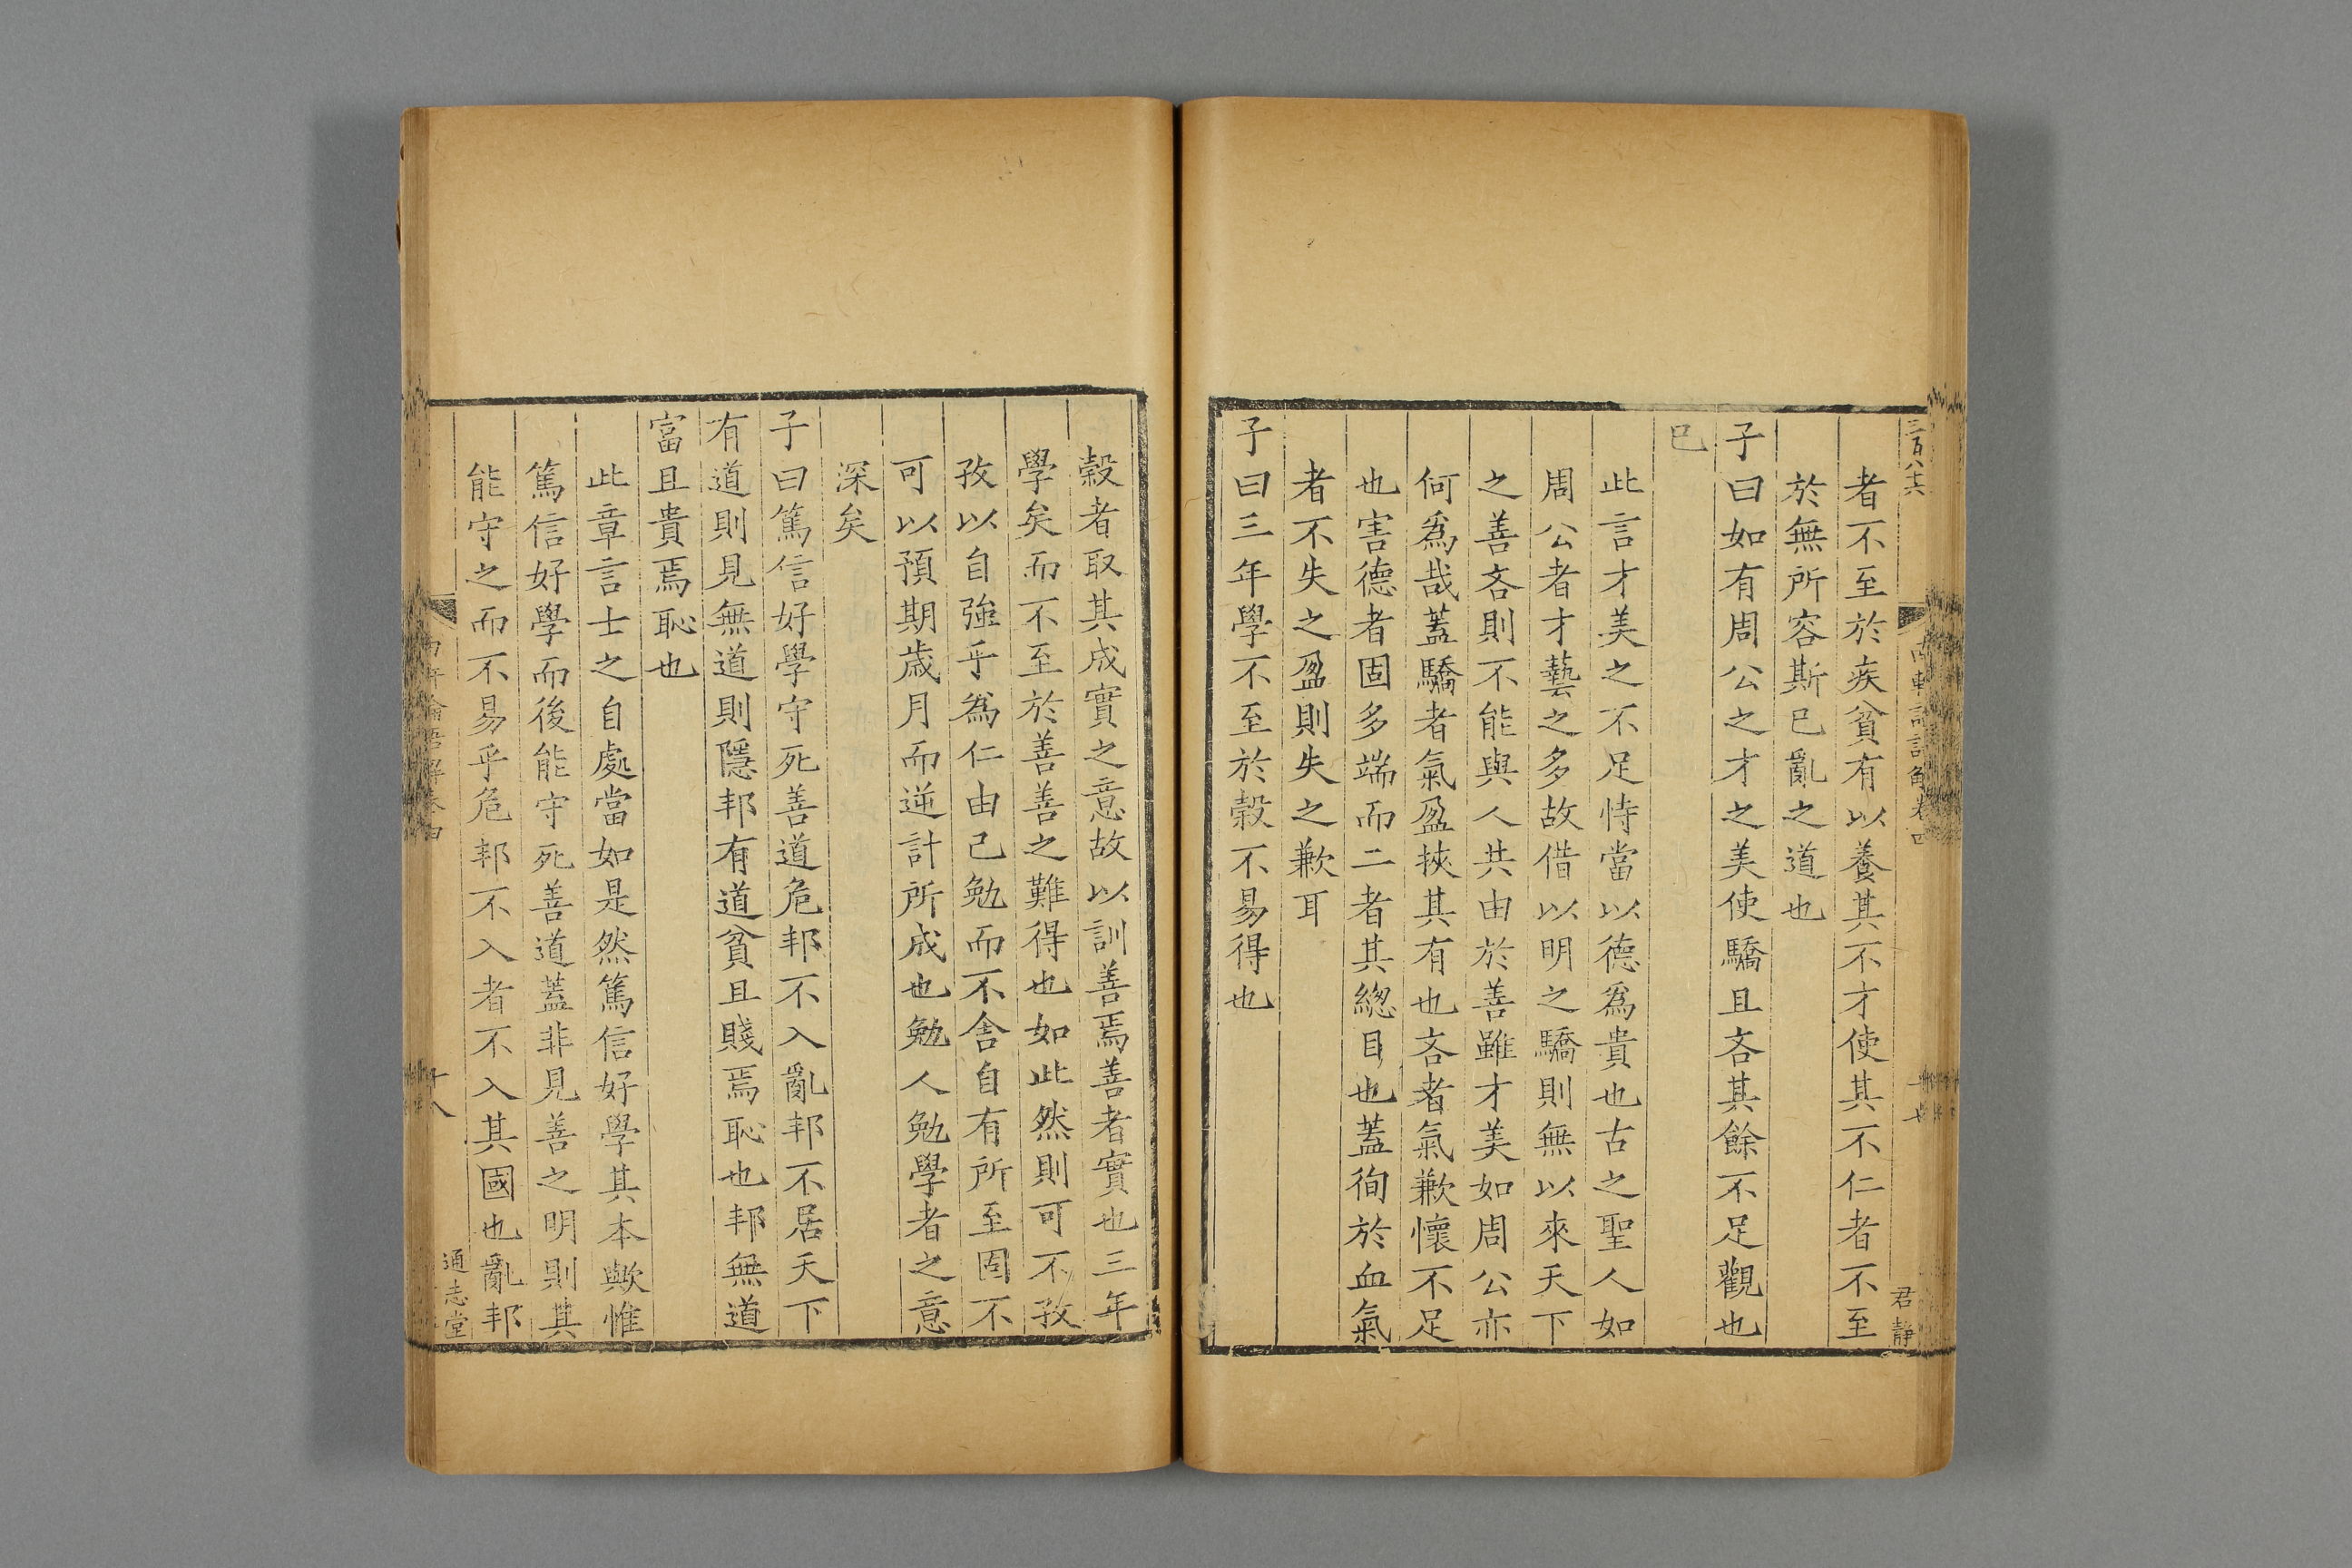 三百八十六
者不至於疾貧有以養其不才使其不仁者不至
於無所容斯已亂之道也
子曰如有周公之才之美使驕且吝其餘不足觀也
已
此言才美之不足恃當以德爲貴也古之聖人如
周公者才藝之多故借以明之驕則無以來天下
之善吝則不能與人共由於善雖才美如周公亦
何爲哉蓋驕者氣盈挾其有也吝者氣歉懷不足
也害德者固多端而二者其總目也蓋徇於血氣
者不失之盈則失之歉耳
子曰三年學不至於穀不易得也
君靜
穀者取其成實之意故以訓善焉善者實也三年
學矣而不至於善善之難得也如此然則可不孜
孜以自強乎爲仁由己勉而不舍自有所至固不
可以預期歲月而逆計所成也勉人勉學者之意
深矣
子曰篤信好學守死善道危邦不入亂邦不居天下
有道則見無道則隱邦有道貧且賤焉恥也邦無道
富且貴焉恥也
此章言士之自處當如是然篤信好學其本歟惟
篤信好學而後能守死善道蓋非見善之明則其
能守之而不易乎危邦不入者不入其國也亂邦
十八
通志堂